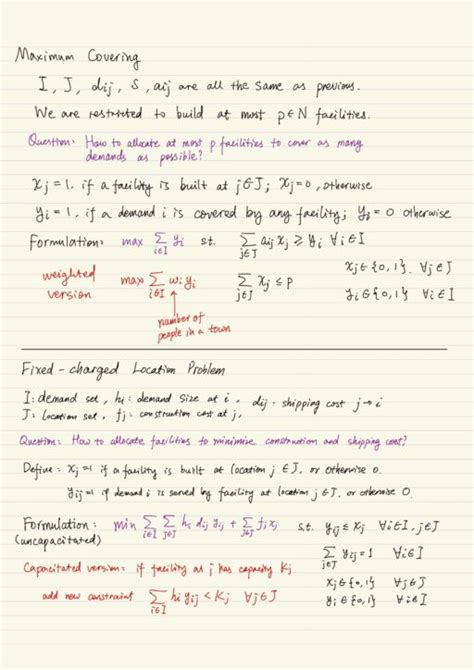 Maximum Covering
I, J, dij, S, aij are all the same as previous.
We are restricted to build at most p∈N facilities.
Question: How to allocate at most p facilities to cover as many
demands as possible?
xj = 1, if a facility is built at j∈J; xj = 0, otherwise
yi = 1, if a demand i is covered by any facility; yi = 0 otherwise
Formulation: max ∑_{i∈I} yi s.t. ∑_{j∈J} aij xj ≥ yi ∀i∈I
weighted version max ∑_{i∈I} wi yi ∑_{j∈J} xj ≤ p
xj ∈ {0,1}. ∀j∈J
yi ∈ {0,1} ∀i∈I
number of
people in a town
Fixed-charged Location Problem
I: demand set, hi: demand size at i, dij: shipping cost j→i
J: location set, fj: construction cost at j,
Question: How to allocate facilities to minimize construction and shipping cost?
Define: xj=1 if a facility is built at location j∈J, or otherwise 0.
yij=1 if demand i is served by facility at location j∈J, or otherwise 0.
Formulation: min ∑_{i∈I} ∑_{j∈J} hi dij yij + ∑_{j∈J} fj xj s.t. yij ≤ xj ∀i∈I, j∈J
(uncapacitated)
∑_{j∈J} yij = 1 ∀i∈I
Capacitated version: if facility at j has capacity Kj
xj ∈ {0,1} ∀j∈J
add new constraint ∑_{i∈I} hi yij < Kj ∀j∈J
yi ∈ {0,1} ∀i∈I